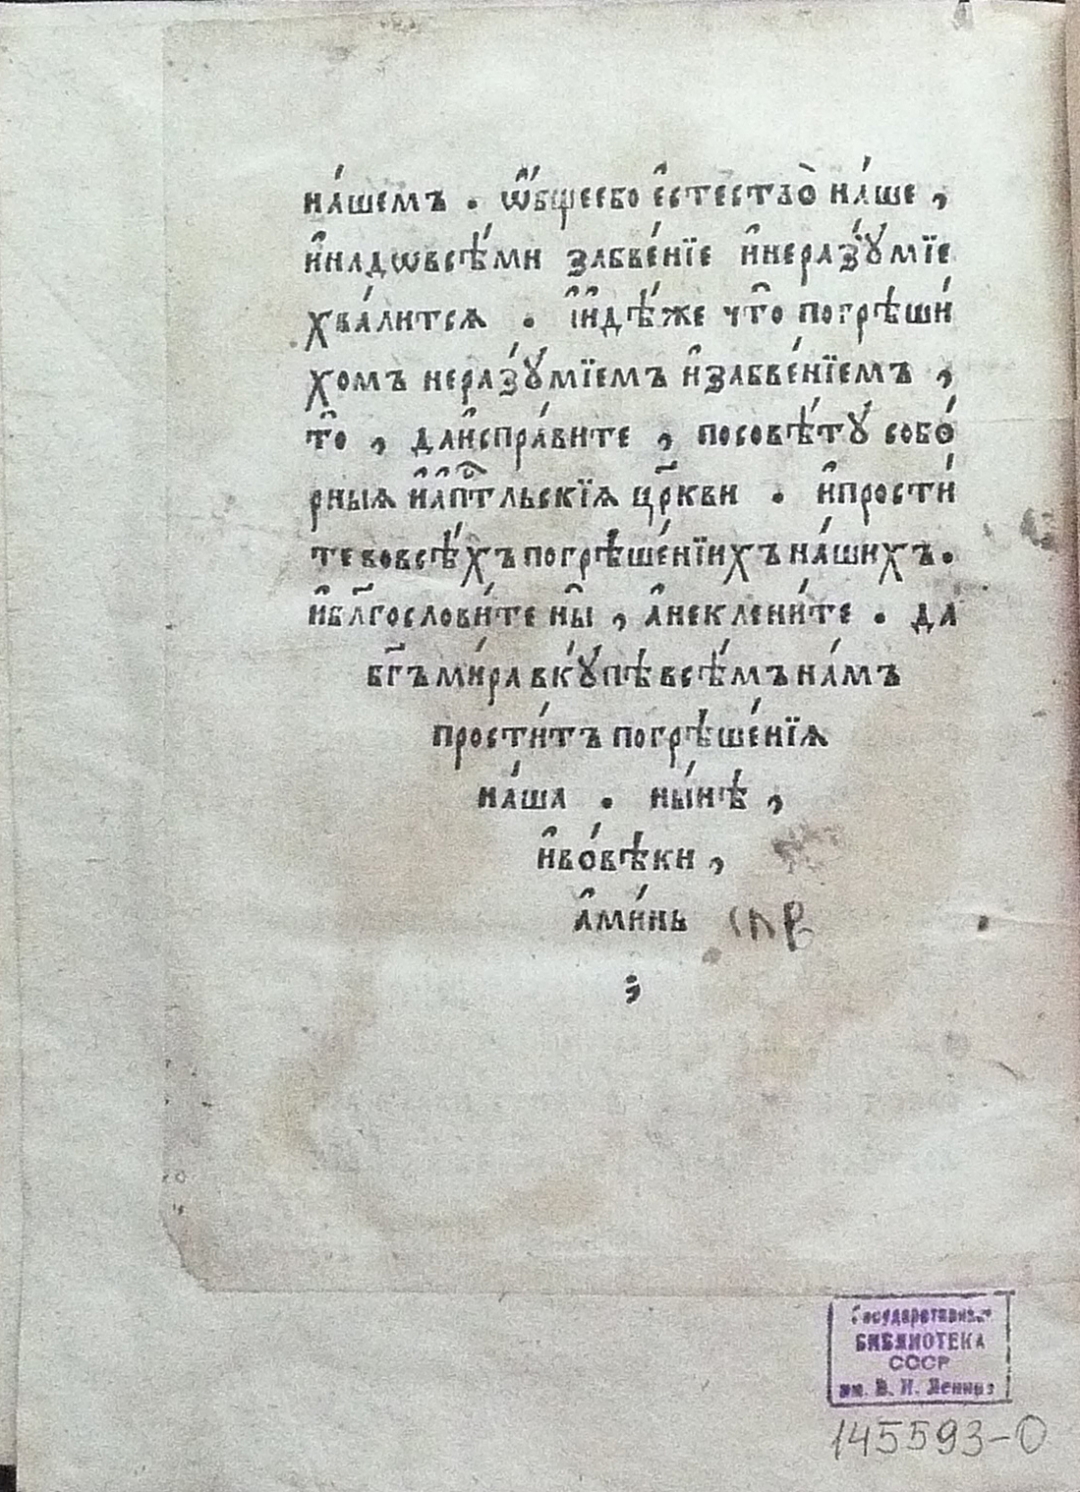 на́шемъ . ѡ҆́бщеебо є҆стество̀ на́ше ,
и҆надѡвсѣ́ми забве́нїе и҆неразꙋ́мїе
хва́литсѧ . і҆и҆дѣ́же что̑ погрѣши́
хомъ неразꙋ́мїемъ и҆забве́нїемъ ,
то̑ , даи҆спра́вите , посовѣ́тꙋ собо́
рныѧ и҆а҆пⷭ҇тльскїѧ цр҃кви . и҆прости́
те вовсѣ́хъ погрѣше́нїихъ на́шихъ .
и҆бл҃гослови́те ны̑ , а҆неклени́те . да
бг҃ъ ми́ра вкꙋ́пѣ всѣ́мъ на́мъ
прости́тъ погрѣше́нїѧ
на́ша . ны́нѣ ,
и҆во́вѣки ,
а҆ми́нь спв
;
Государственная
БИБЛИОТЕКА
СССР
им. В. И. Ленина
145593-О